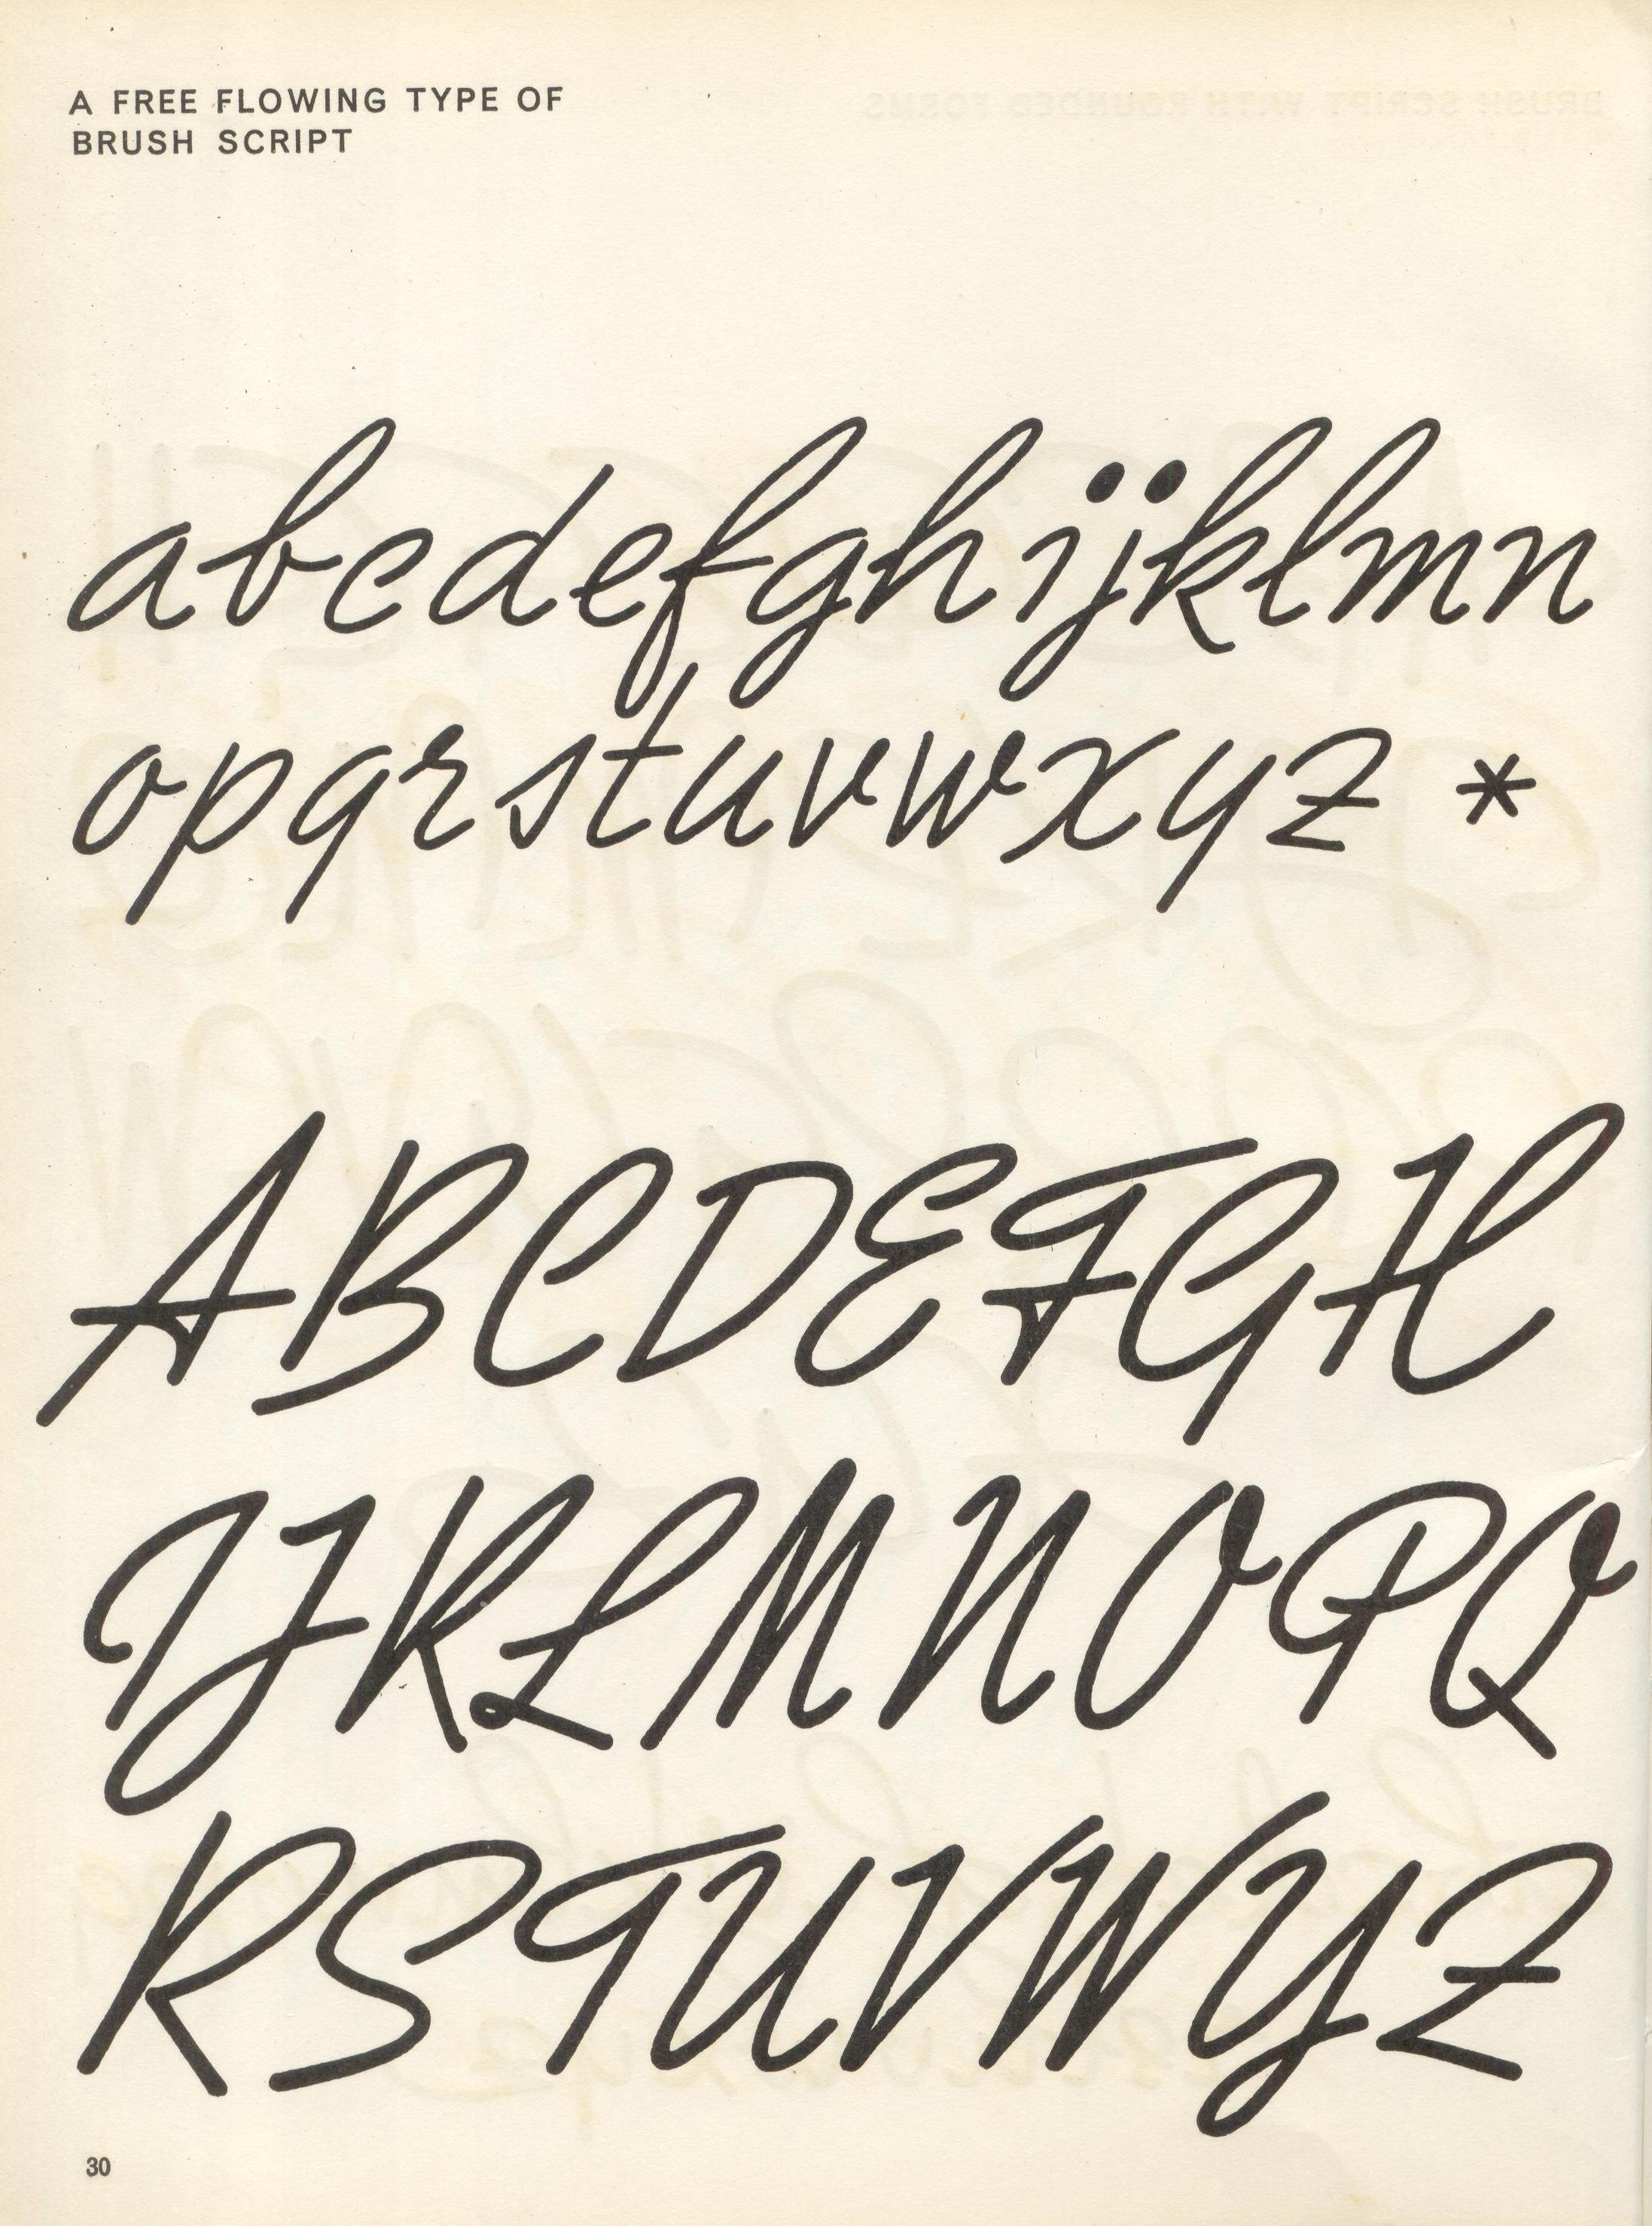 A FREE FLOWING TYPE OF
BRUSH SCRIPT
abcdefghijklmn
opqrstuvwxyz *
ABCDEFGH
IJKLMNOPQ
RSTUVWYZ
30